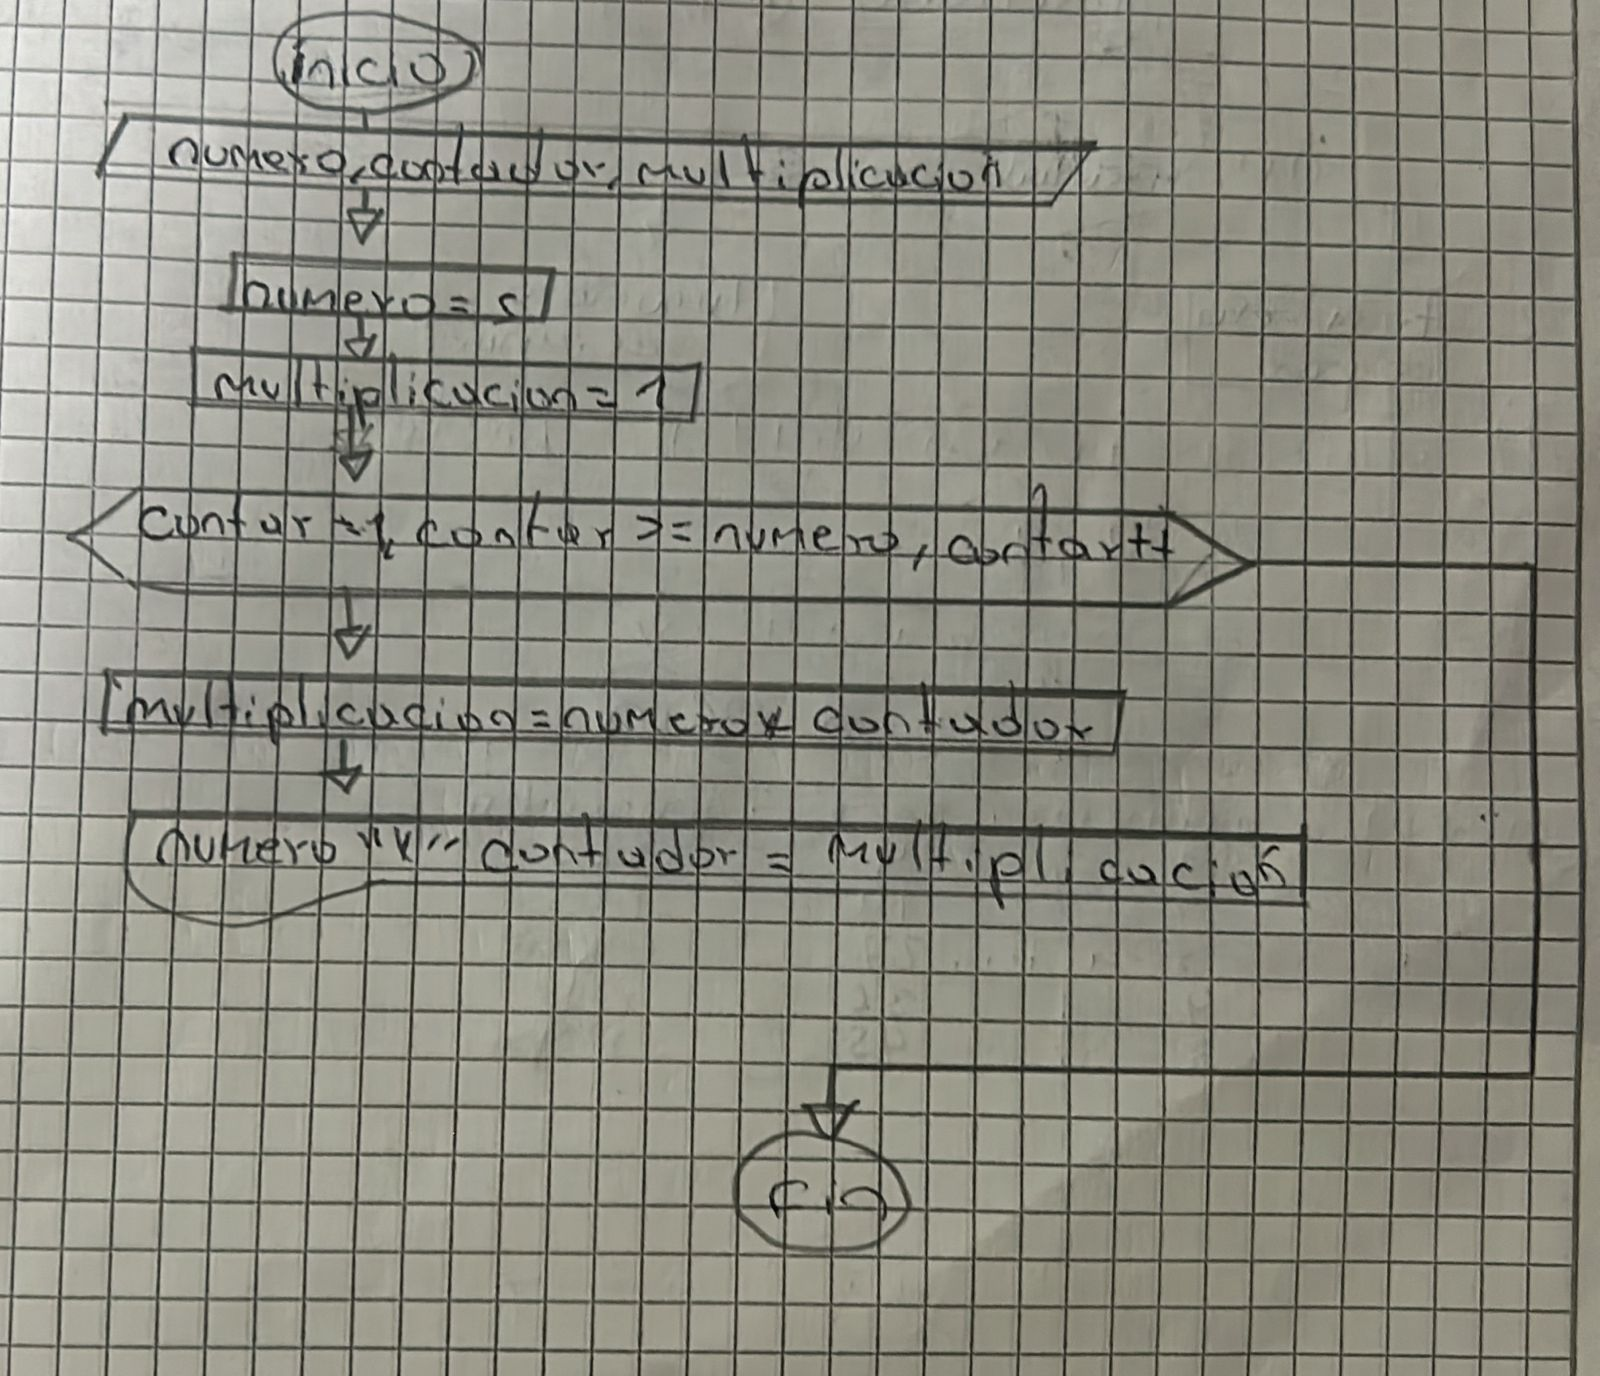 inicio
numero, contador, multiplicacion
numero = 5
multiplicacion = 1
contar = 1, contar >= numero, contar++
multiplicacion = numero * contador
numero "x" contador = multiplicacion
Fin